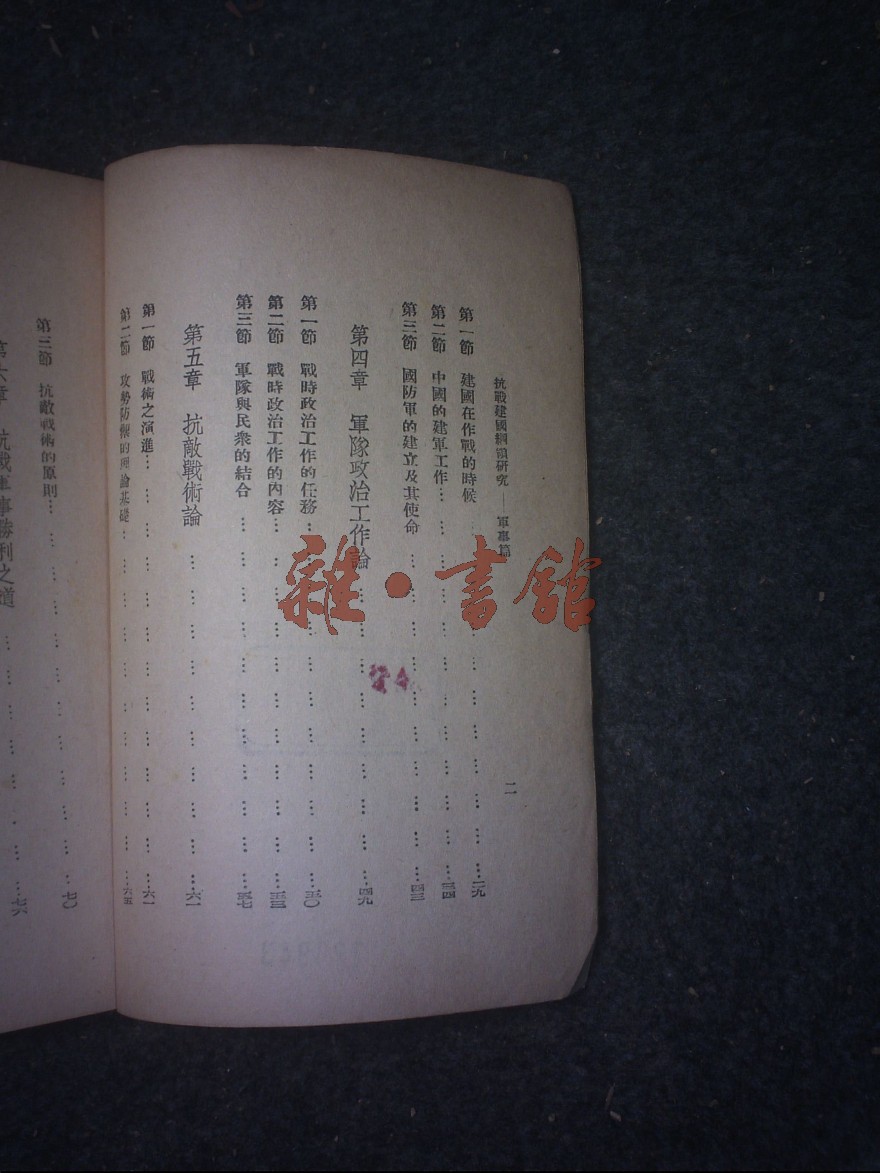 抗戰建國綱領研究——軍事篇
二
第一節 建國在作戰的時候……二九
第二節 中國的建軍工作……三四
第三節 國防軍的建立及其使命……四三
第四章 軍隊政治工作論……四九
第一節 戰時政治工作的任務……五〇
第二節 戰時政治工作的內容……五三
第三節 軍隊與民衆的結合……五七
第五章 抗敵戰術論……六一
第一節 戰術之演進……六一
第二節 攻勢防禦的理論基礎……六五
第三節 抗敵戰術的原則……七〇
第六章 抗戰軍事勝利之道……七六
雜·書館